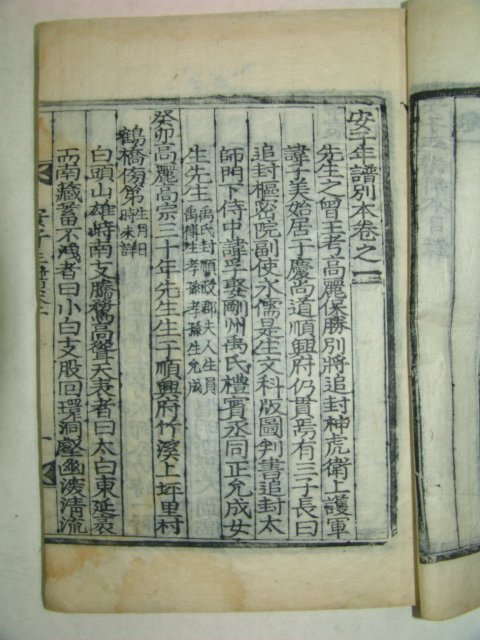 安子年譜別本卷之一
先生之曾王考高麗保勝別將追封神虎衛上護軍
諱子美始居于慶尚道順興府仍貫焉有三子長曰
永儒是生文科版圖判書追封太
追封樞密院副使
師門下侍中諱孚娶剛州禹氏禮賓丞同正允成女
生先生
禹氏封順政郡夫人生員
禹傅生孝孫孝孫生允成
癸卯高麗高宗三十年先生生于順興府竹溪上坪里村
鶴橋傍第
生月日
時未詳
白頭山雄峙南支騰騖高聳天表者曰太白東延袤
而南藏蓄不洩者曰小白支股回環洞壑幽深清流